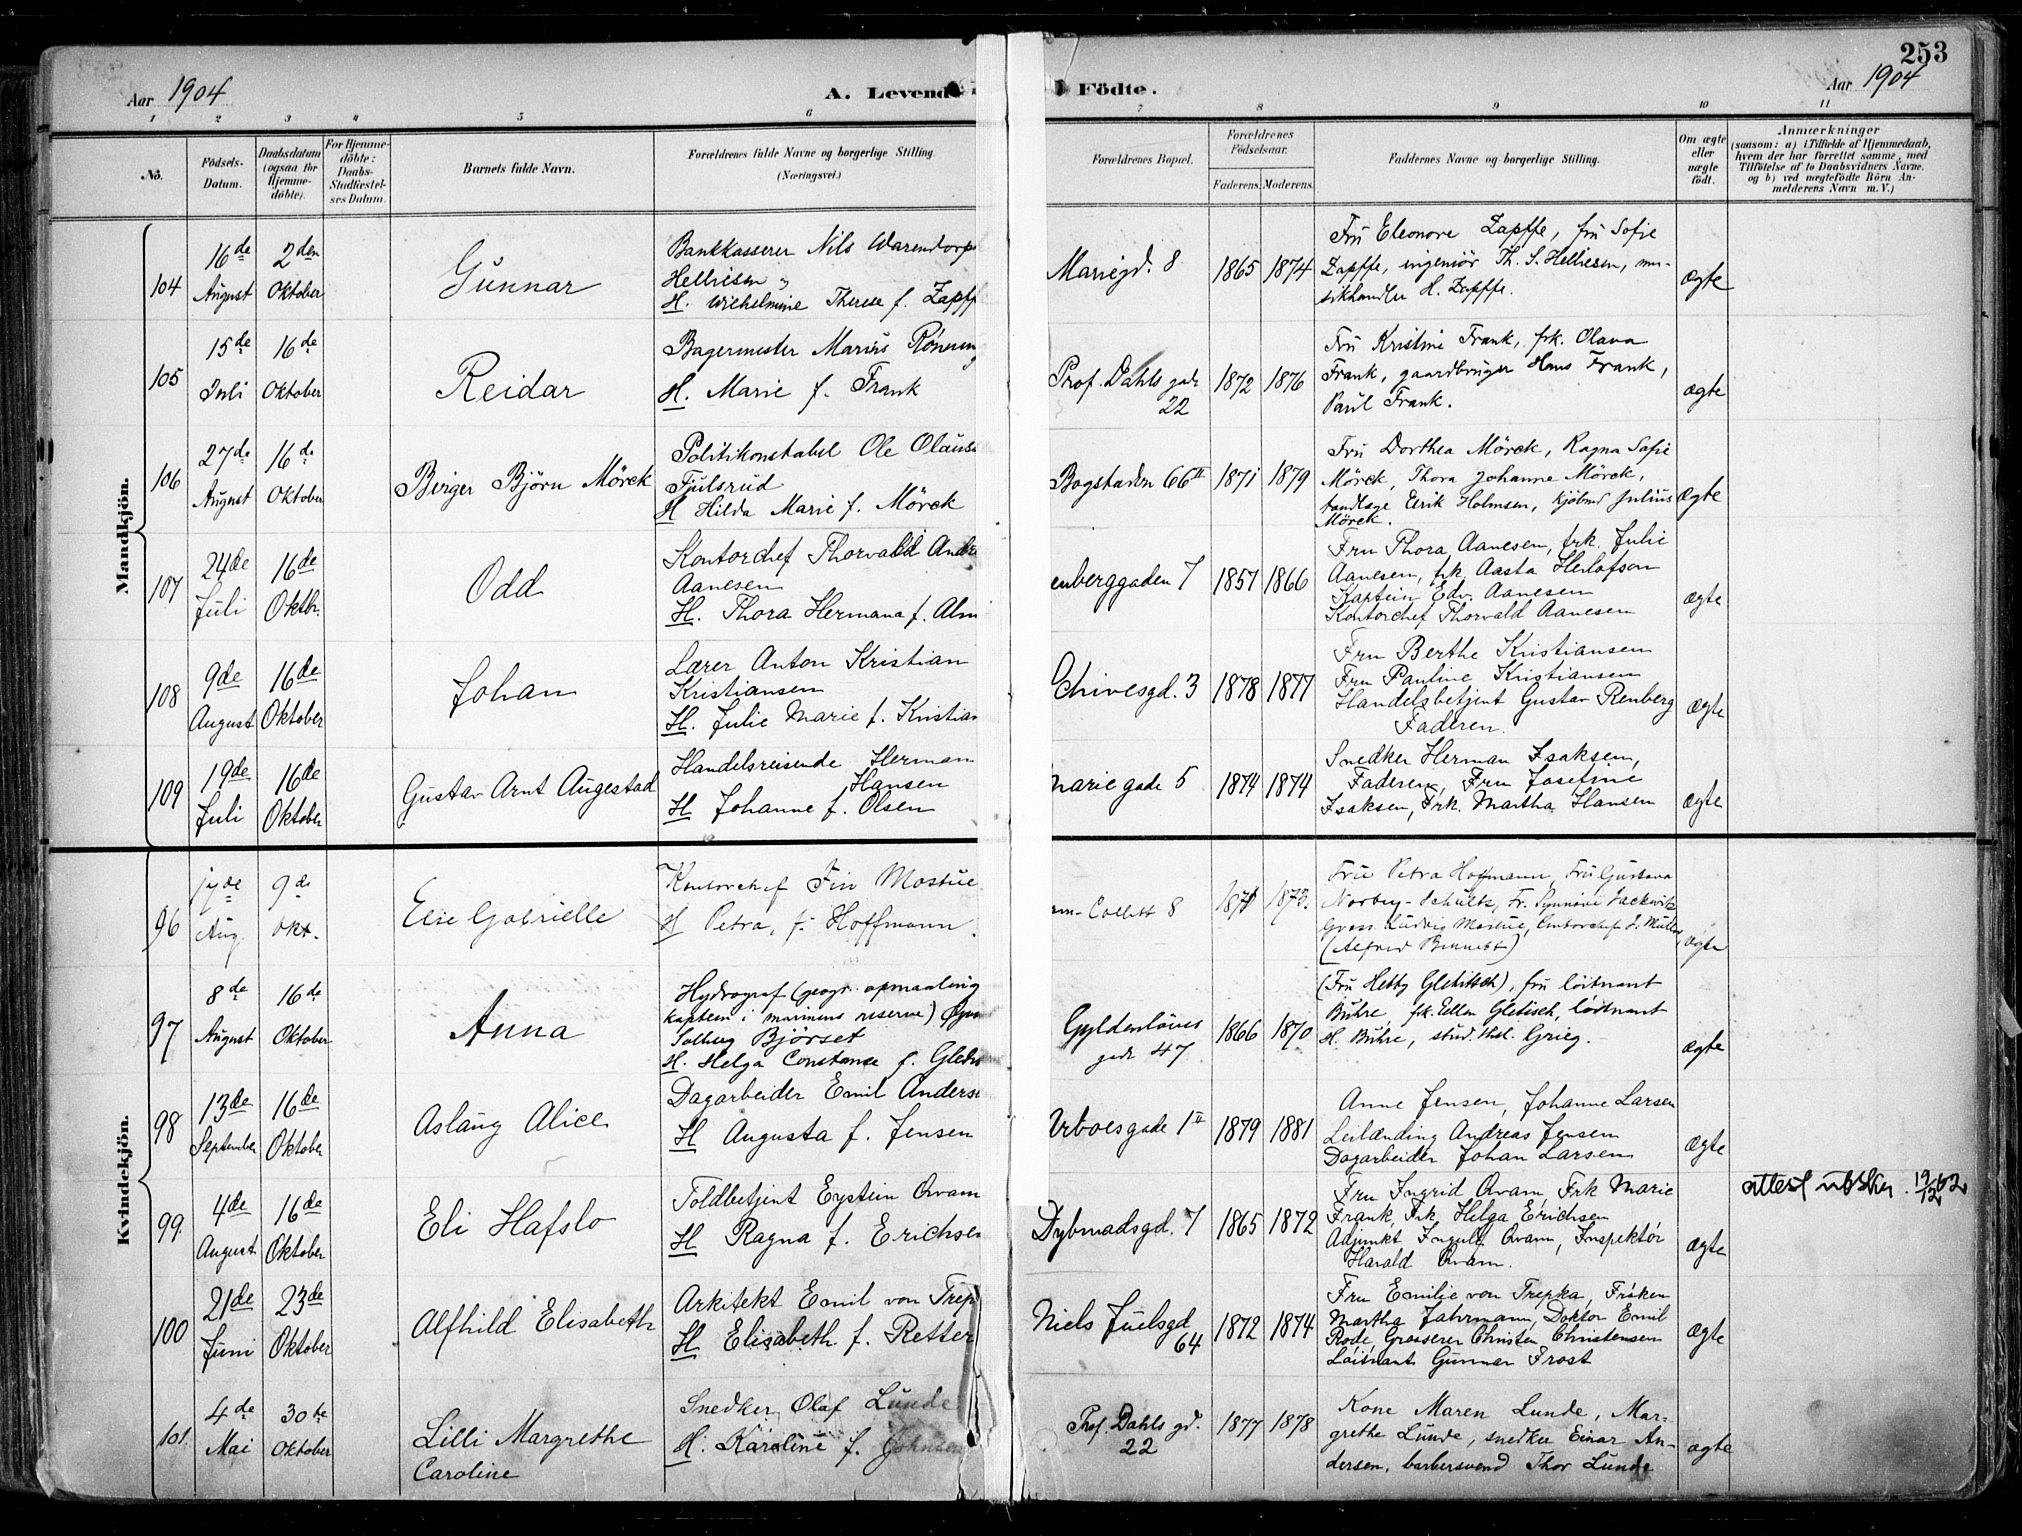 253
Aar 1904
A. Levende Födte.
Aar 1904
1 2 3 4 5 6 7 8 9 10 11
No.
Födsels-
Datum.
Daabsdatum
(ogsaa for
Hjemme-
döbte).
For Hjemme-
döbte:
Daabs-
Stadfæstel-
ses Datum.
Barnets fulde Navn.
Forældrenes fulde Navne og borgerlige Stilling.
(Næringsvei.)
Forældrenes Bopæl.
Forældrenes
Födselsaar.
Faderens. Moderens.
Faddernes Navne og borgerlige Stilling.
Om ægte
eller
uægte
födt.
Anmærkninger
(saasom: a) i Tilfælde af Hjemmedaab,
hvem der har forrettet samme, med
Tilföielse af to Daabsvidners Navne.
og b) ved uægtefödte Börn An-
melderens Navn m. V.)
Mandkjön.
104
16de
August
2den
Oktober
Gunnar
Bankkasserer Nils Warendorp
Helliesen
H. Wilhelmine Therese f. Zapff
Mariegd. 8
1865 1874
Fru Eleonore Zapffe, fru Sofie
Zapffe, ingeniör Th. S. Helliesen, mu-
sikhandler H. Zapffe.
ægte
105
15de
Juli
16de
Oktober
Reidar
Bagermester Marius Rönning
H. Marie f. Frank
Prof. Dahls gade
22
1872 1876
Fru Kristine Frank, frk. Olava
Frank, gaardbruger Hans Frank,
Paul Frank.
ægte
106
27de
August
16de
Oktober
Birger Björn Mörck
Politikonstabel Ole Olaus
Fjulsrud
H Hilda Marie f. Mörck
Bogstadvn 66 II
1871 1879
Fru Dorthea Mörck, Ragna Sofie
Mörck, Thora Johanne Mörck,
tandlæge Eirik Holmsen, kjöbmd Julius
Mörck.
ægte
107
24de
Juli
16de
Oktbr.
Odd
Kontorchef Thorvald Andr
Aanesen
H. Thora Hermana f. Alm
enberggaden 7
1851 1866
Fru Thora Aanesen, frk. Julie
Aanesen, frk Aasta Herlofson
Kaptein Edv. Aanesen
Kontorchef Thorvald Aanesen
ægte
108
9de
August
16de
Oktober
Johan
Lærer Anton Kristian
Kristiansen
H. Julie Marie f. Kristian
Schivesgd. 3
1878 1877
Fru Berthe Kristiansen
Fru Pauline Kristiansen
Handelsbetjent Gustav Renberg
Faderen.
ægte
109
19de
Juli
16de
Oktober
Gustav Arnt Augestad
Handelsreisende Herman
Hansen
H Johanne f. Olsen
Mariegade 5
1874 1874
Snedker Herman Isaksen,
Faderen, Fru Josefine
Isaksen, Frk. Martha Hansen
ægte
Kvindekjön.
96
17de
Aug.
9de
Okt.
Else Gabrielle
Kontorchef Fin Mostue
H Petra, f. Hoffmann.
Collett 8
1871 1873.
Fru Petra Hoffmann, Fru Gustava
Norbey-Schultz, Fr. Synnöve Jackwitz
Gross. Ludvig Mostue, Contorchef J. Müller,
(Alfred Bennett)
ægte
97
8de
August
16de
Oktober
Anna
Hydrograf (geogr. opmaaling
kaptein i marinens reserve)
Solberg Björset
H. Helga Constance f. Gledi
Gyldenlöves
gade 47
1866 1870
(Fru Hetty Gleditsch), fru löitnant
Buhre, frk. Ellen Gleditsch, löitnant
H. Buhre, stud. theol. Grieg.
ægte
98
13de
September
16de
Oktober
Aslaug Alice
Dagarbeider Emil Anderse
H Augusta f. Jensen
Arboesgade 1 II
1879 1881
Anne Jensen, Johanne Larsen
Leilænding Andreas Jensen
Dagarbeider Johan Larsen
ægte
99
4de
August
16de
Oktober
Eli Hafslo
Toldbetjent Eystein Qvam
H Ragna f. Erichsen
Dybwadsgd. 7
1865 1872
Fru Ingrid Qvam, Frk Marie
Frank, Frk Helga Erichsen
Adjunkt Ingulf Qvam, Inspektör
Harald Qvam.
ægte
attest utskr. 19/12 62
100
21de
Juni
23de
Oktober
Alfhild Elisabeth
Arkitekt Emil von Trep
H Elisabeth f. Retter
Niels Juelsgd
64
1872 1874
Fru Emilie von Trepka, Fröken
Martha Fahrmann, Doktor Emil
Rode, Grosserer Christen Christensen
Löitnant Gunnar Frost
ægte
101.
4de
Mai
30te
Oktober
Lilli Margrethe
Caroline
Snedker Olaf Lunde
H. Karoline f. Johnsen
Prof. Dahls gd.
22
1877 1878
Kone Maren Lunde, Mar-
grethe Lunde, snedker Einar An-
dersen, barbersvend Thor Lunde
ægte